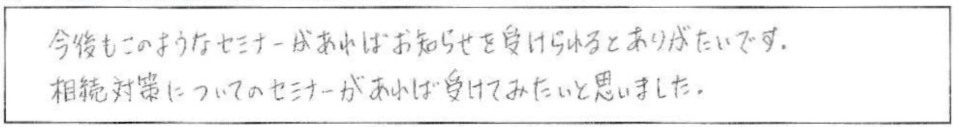 今後もこのようなセミナーがあればお知らせを受けられるとありがたいです.
相続対策についてのセミナーがあれば受けてみたいと思いました.